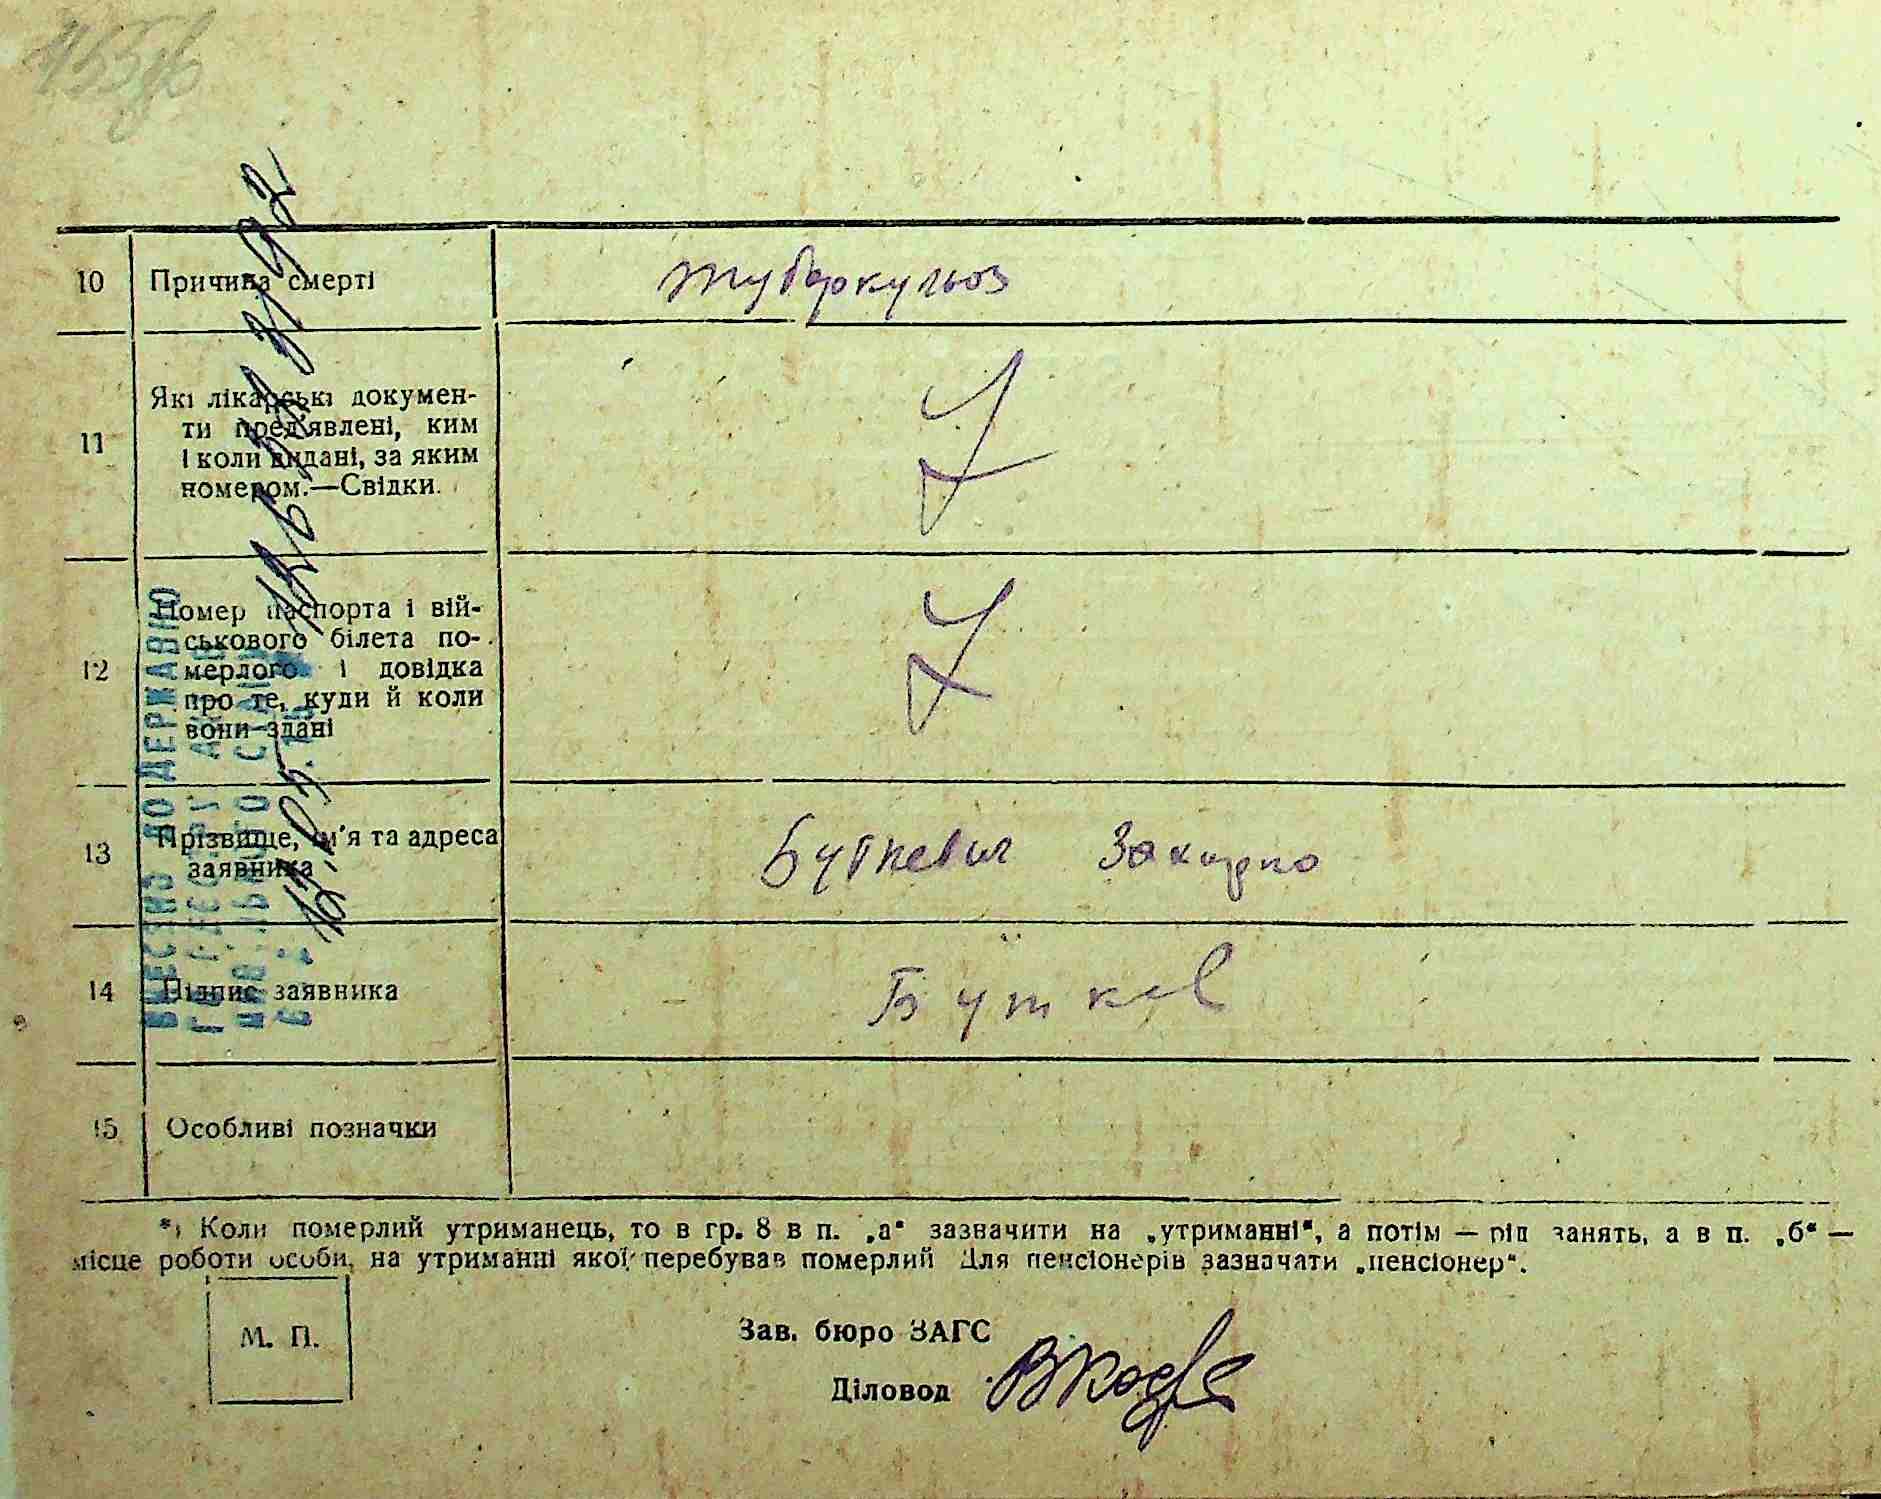 10 Причина смерті туберкульоз
11 Які лікарські докумен-
ти пред'явлені, ким
і коли видані, за яким
номером.—Свідки.
12 Номер паспорта і вій-
ськового білета по-
мерлого і довідка
про те, куди й коли
вони здані
13 Прізвище, ім'я та адреса
заявника Буткевич
14 Підпис заявника Буткев
15 Особливі позначки
*) Коли померлий утриманець, то в гр. 8 в п. „а“ зазначити на „утриманні“, а потім — рід занять, а в п. „б“ —
місце роботи особи, на утриманні якої перебував померлий Для пенсіонерів зазначати „пенсіонер“.
М. П.
Зав. бюро ЗАГС
Діловод
ВНЕСЕНО ДО ДЕРЖАВНО